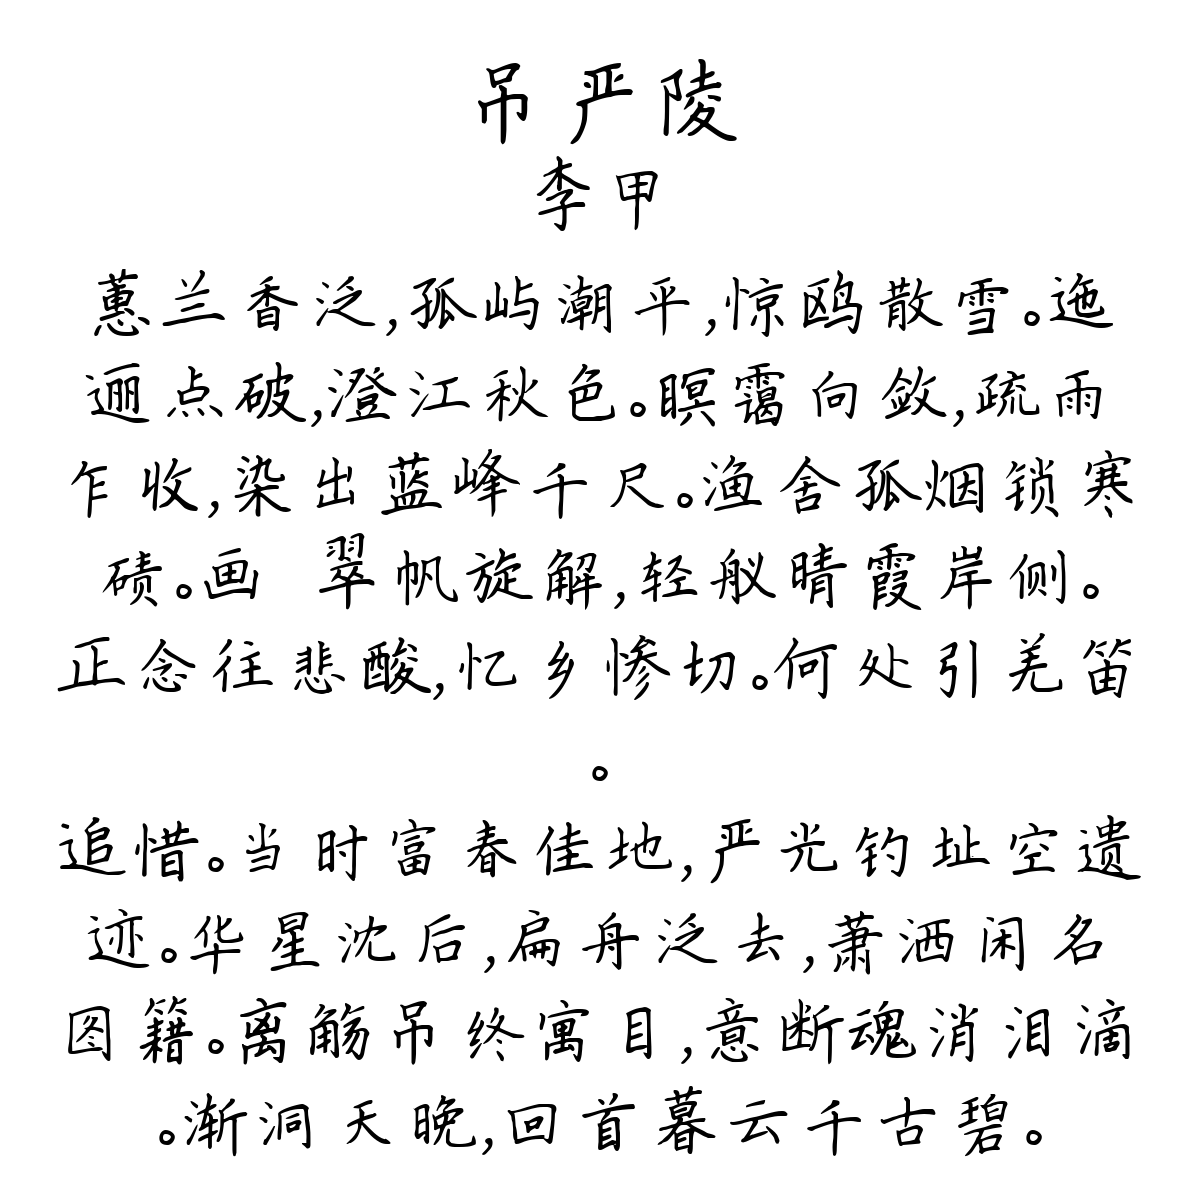 吊严陵
李甲
蕙兰香泛,孤屿潮平,惊鸥散雪。迤
逦点破,澄江秋色。瞑霭向敛,疏雨
乍收,染出蓝峰千尺。渔舍孤烟锁寒
碛。画 翠帆旋解,轻舣晴霞岸侧。
正念往悲酸,忆乡惨切。何处引羌笛
。
追惜。当时富春佳地,严光钓址空遗
迹。华星沈后,扁舟泛去,萧洒闲名
图籍。离觞吊终寓目,意断魂消泪滴
。渐洞天晚,回首暮云千古碧。